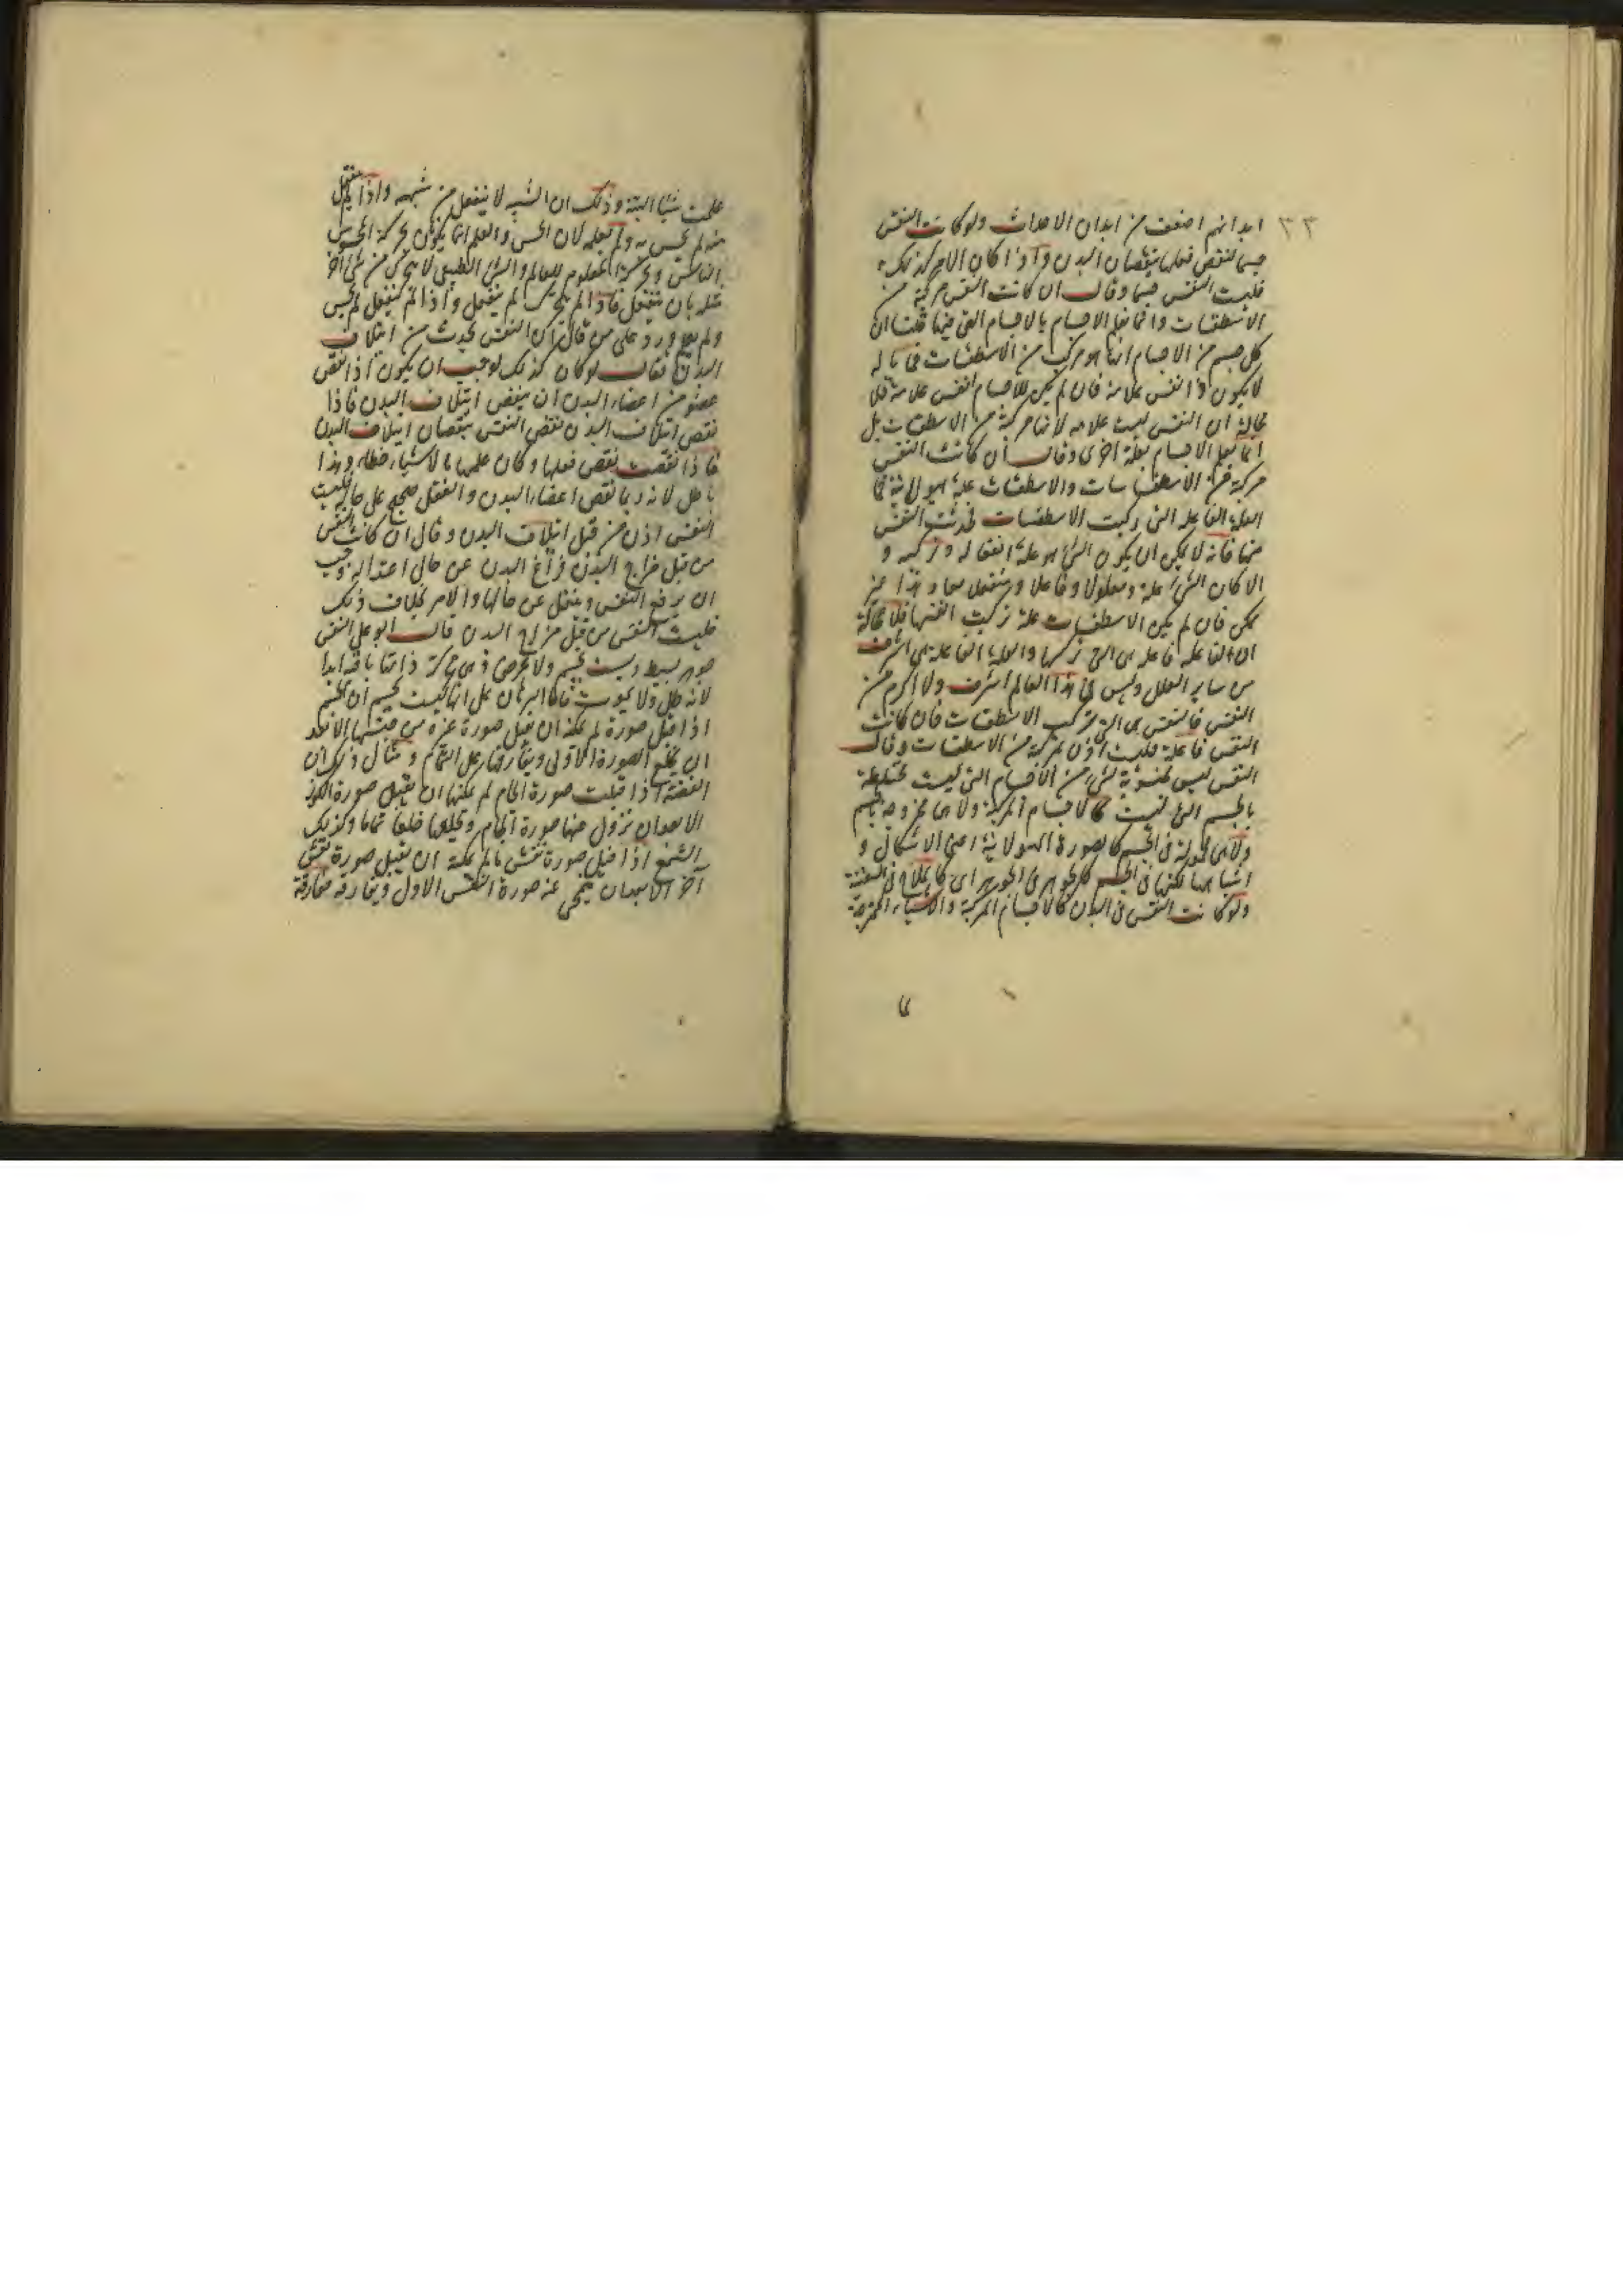 ٣٣
ابدانهم اضعف من ابدان الاحداث ولو كانت النفس
جسما لنقص فعلها بنقصان البدن واذا كان الامر كذلك
فليست النفس جسما وقال ان كانت النفس مركبة من
الاسطقسات وانما تعلم الاجسام بالاجسام التي فيها قلنا ان
كل جسم من الاجسام انما هو مركب من الاسطقسات فما باله
لا يكون ذا نفس علامة فان لم يكن للاجسام انفس علامة فلا
محالة ان النفس ليست علامه لانها مركبة من الاسطقسات بل
انما تعلم الاجسام بعلة اخرى وقال ان كانت النفس
مركبة من الاسطقسات والاسطقسات علة هيولانية فما
العلة الفاعله التي ركبت الاسطقسات فحدثت النفس
منها فانه لا يمكن ان يكون الشئ هو علة انفعاله وتركيبه و
الا كان الشئ علة ومعلولا وفاعلا ومنفعلا معا وهذا غير
ممكن فان لم يكن الاسطقسات علة تركيب انفسها فلا محالة
ان لها علة فاعله هى التي تركبها والعلة الفاعلة هى اشرف
من ساير العلل وليس في هذا العالم اشرف ولا اكرم من
النفس فالنفس هى التي تركب الاسطقسات فان كانت
النفس فاعلة فليست اذن بمركبة من الاسطقسات وقال
النفس ليس بمنسوبة لشئ من الاجسام التي ليست مختلطة
بالجسم التي ليست كالاجسام المركبة ولا هى ممزوجه بالجسم
ولا هى محمولة في الجسم كالصورة الهيولانية اعني الاشكال و
اشباهها لكنها في الجسم كالجوهر في الجوهر اى كالملاح في السفينة
ولو كانت النفس في البدن كالاجسام المركبة والاشياء الممتزجة
لما
علمت شيئا البتة وذلك ان الشبيه لا ينفعل من شبهه واذا لم ينفعل
منه لم يحس به ولم يعلمه لان الحس والعلم انما يكون بحركة المحسوس
الحاس وبحركة المعلوم للعالم والشئ الطبيعى لا يتحرك من شئ آخر
مثله بان ينفعل فاذا لم يتحرك لم ينفعل واذا لم ينفعل لم يحس
ولم يعلم ورد على من قال ان النفس تحدث من ايتلاف
البدن فقال لو كان كذلك لوجب ان يكون اذا نقص
عضو من اعضاء البدن ان ينقص ايتلاف البدن فاذا
نقص ايتلاف البدن نقص النفس بنقصان ايتلاف البدن
فاذا نقصت نقص فعلها وكان علمها بالاشياء خطاء وهذا
باطل لانه ربما نقص اعضاء البدن والعقل صحيح على حاله فليست
النفس اذن من قبل ايتلاف البدن وقال ان كانت النفس
من قبل مزاج البدن فزاغ البدن عن حال اعتداله وجب
ان يرفع النفس وينتقل عن حالها والامر بخلاف ذلك
فليست النفس من قبل مزاج البدن قال ابو على النفس
جوهر بسيط وليست بجسم ولا بعرض وهى محركة ذاتها باقيه ابدا
لانه تبطل ولا تموت فاما البرهان على انها ليست بجسم ان الجسم
اذا قبل صورة لم يمكنه ان يقبل صورة غيره من جنسها الا بعد
ان يخلع الصورة الاولى ويفارقها على التمام ومثال ذلك ان
الفضة اذا قبلت صورة الجام لم يمكنها ان تقبل صورة الكوز
الا بعد ان تزول عنها صورة الجام وتخلعها خلعا تاما وكذلك
الشمع اذا قبل صورة نقش ما لم يمكنه ان يقبل صورة نقش
آخر الا بعد ان يمحى عنه صورة النقش الاول ويفارقه مفارقة